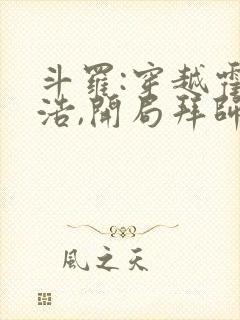 斗羅:穿越霍
浩,開局拜師
風之天